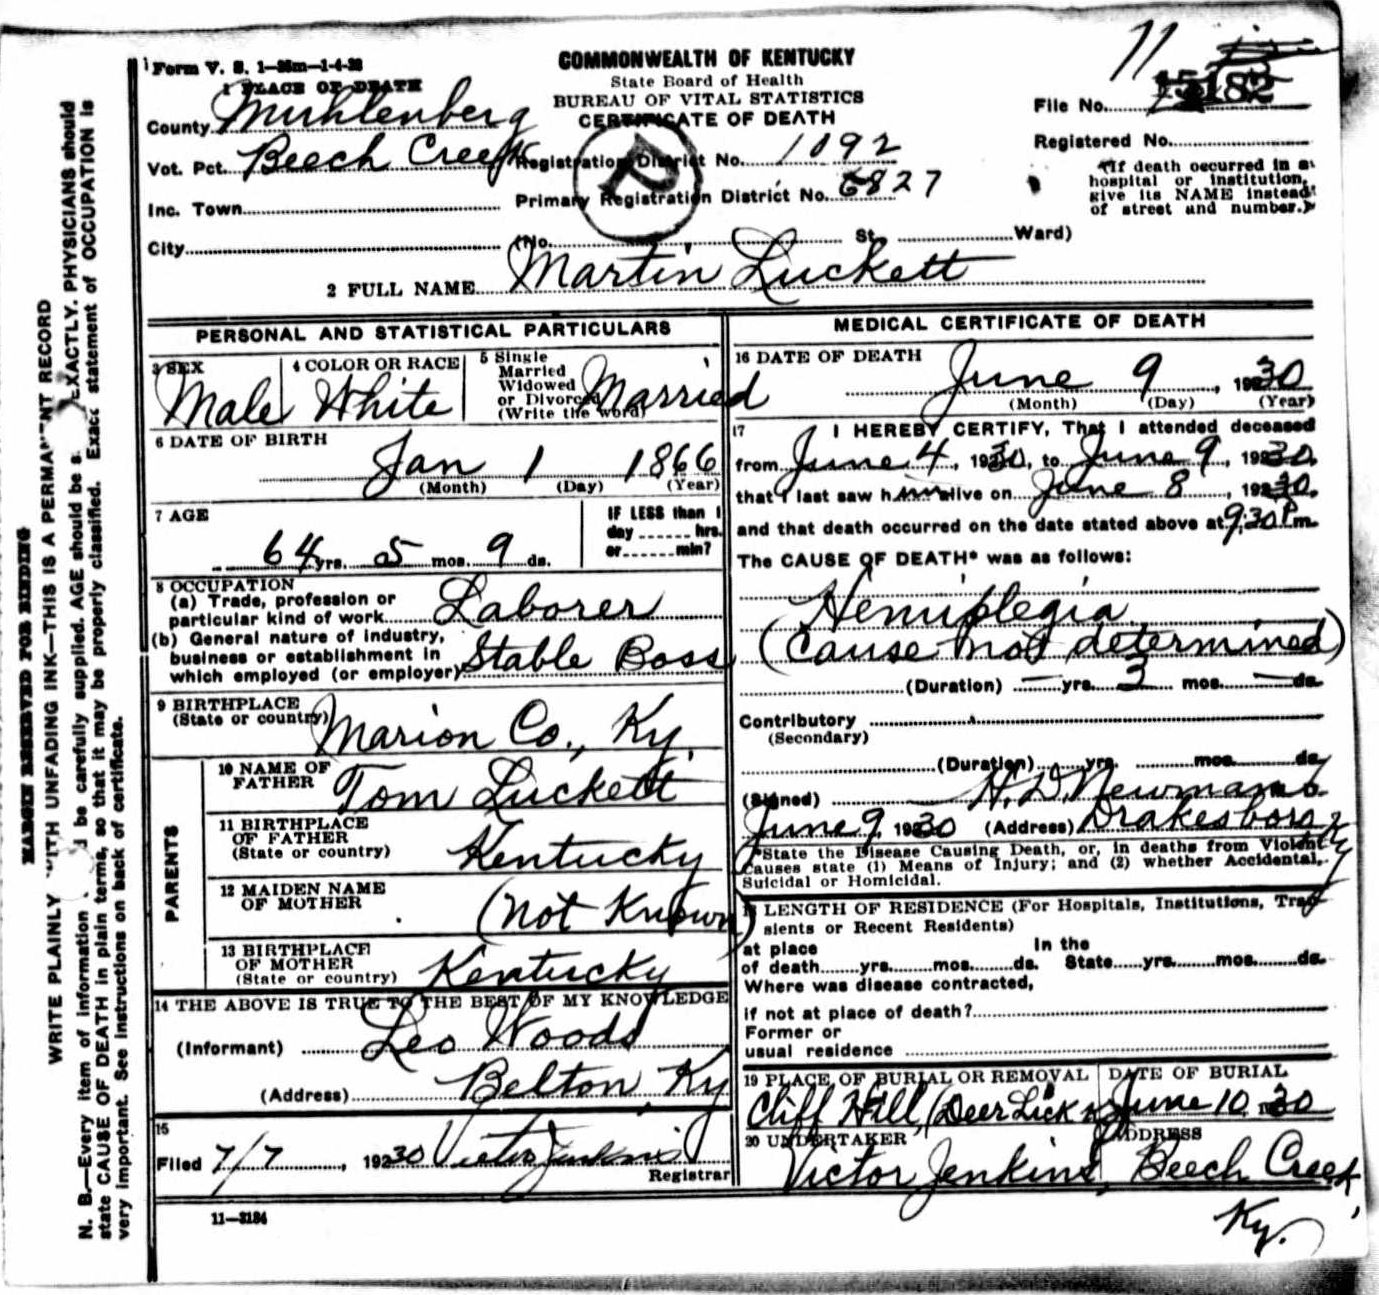 Form V. S. 1—25m—1-4-28
COMMONWEALTH OF KENTUCKY
State Board of Health
BUREAU OF VITAL STATISTICS
CERTIFICATE OF DEATH
11
File No. 15182
Registered No.
(If death occurred in a hospital or institution, give its NAME instead of street and number.)
1 PLACE OF DEATH
County Muhlenberg
Vot. Pct. Beech Creek Registration District No. 1092
Inc. Town Primary Registration District No. 6827
City (No. St. Ward)
2 FULL NAME Martin Luckett
PERSONAL AND STATISTICAL PARTICULARS
3 SEX Male
4 COLOR OR RACE White
5 Single Married Widowed or Divorced (Write the word) Married
6 DATE OF BIRTH Jan 1 1866
(Month) (Day) (Year)
7 AGE 64 yrs. 5 mos. 9 ds.
IF LESS than 1 day hrs. or min?
8 OCCUPATION
(a) Trade, profession or particular kind of work Laborer
(b) General nature of industry, business or establishment in which employed (or employer) Stable Boss
9 BIRTHPLACE (State or country) Marion Co., Ky.
PARENTS
10 NAME OF FATHER Tom Luckett
11 BIRTHPLACE OF FATHER (State or country) Kentucky
12 MAIDEN NAME OF MOTHER (Not Known)
13 BIRTHPLACE OF MOTHER (State or country) Kentucky
14 THE ABOVE IS TRUE TO THE BEST OF MY KNOWLEDGE
(Informant) Leo Woods
(Address) Belton, Ky
15
Filed 7/7, 1930 Victor Jenkins
Registrar
11—3184
MEDICAL CERTIFICATE OF DEATH
16 DATE OF DEATH June 9, 1930
(Month) (Day) (Year)
17 I HEREBY CERTIFY, That I attended deceased
from June 4, 1930, to June 9, 1930,
that I last saw him alive on June 8, 1930,
and that death occurred on the date stated above at 9:30 P m.
The CAUSE OF DEATH* was as follows:
Hemiplegia
(cause not determined)
(Duration) — yrs. 3 mos. — ds.
Contributory
(Secondary)
(Duration) yrs. mos. ds.
(Signed) H. D. Newman
June 9, 1930 (Address) Drakesboro Ky
*State the Disease Causing Death, or, in deaths from Violent
Causes state (1) Means of Injury; and (2) whether Accidental,
Suicidal or Homicidal.
LENGTH OF RESIDENCE (For Hospitals, Institutions, Tran-
sients or Recent Residents)
at place of death yrs. mos. ds. In the State yrs. mos. ds.
Where was disease contracted,
if not at place of death?
Former or
usual residence
19 PLACE OF BURIAL OR REMOVAL Cliff Hill, (Deer Lick
DATE OF BURIAL June 10, 1930
20 UNDERTAKER Victor Jenkins,
ADDRESS Beech Creek, Ky.
MARGIN RESERVED FOR BINDING
WRITE PLAINLY WITH UNFADING INK—THIS IS A PERMANENT RECORD
N. B.—Every item of information be carefully supplied. AGE should be EXACTLY. PHYSICIANS should
state CAUSE OF DEATH in plain terms, so that it may be properly classified. Exact statement of OCCUPATION is
very important. See instructions on back of certificate.